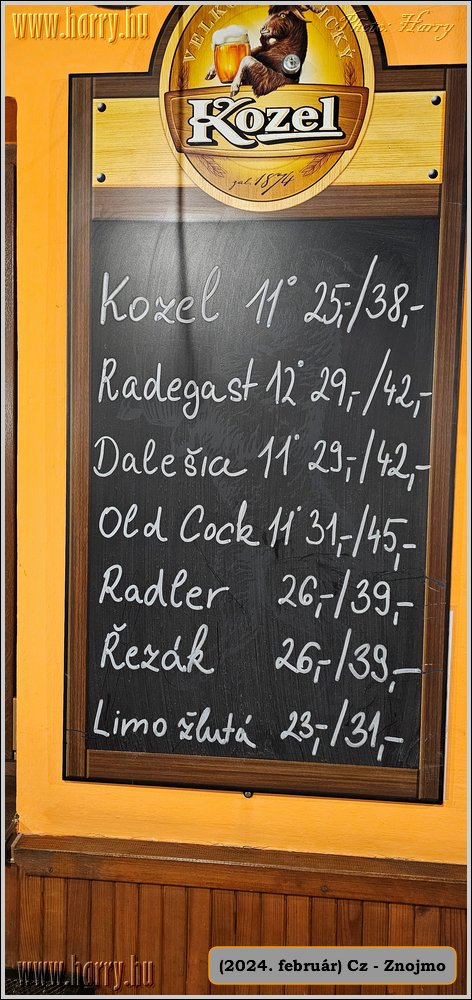 www.harry.hu
Photo: Harry
Kozel
gal. 1874
Kozel 11° 25,-/38,-
Radegast 12° 29,-/42,-
Dalešia 11° 29,-/42,-
Old Cock 11° 31,-/45,-
Radler 26,-/39,-
Řezák 26,-/39,-
Limo žlutá 23,-/31,-
www.harry.hu
(2024. február) Cz - Znojmo